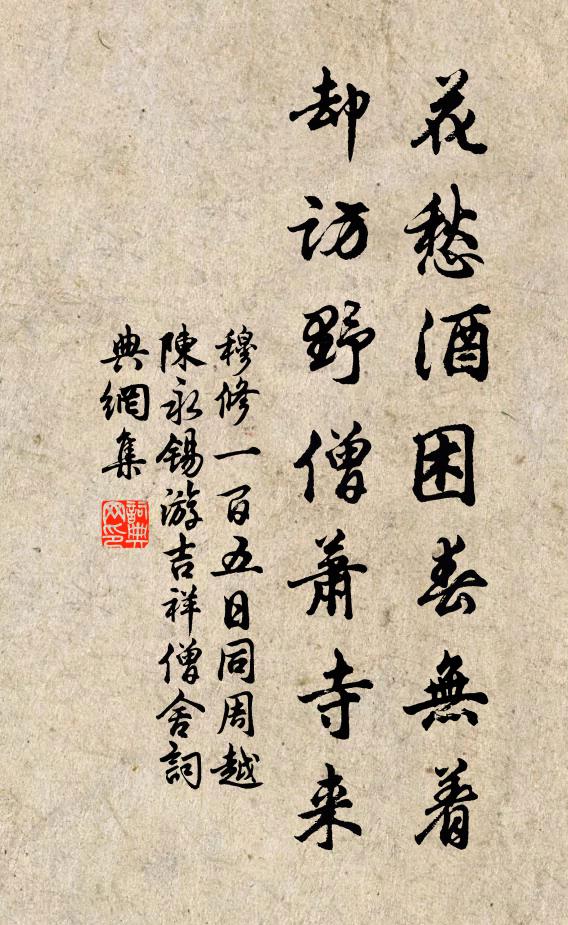 花愁酒困春無着
却访野僧蕭寺来
穆修一百五日同周越
陳永錫游吉祥僧舍詞
典網集
詞典
网印